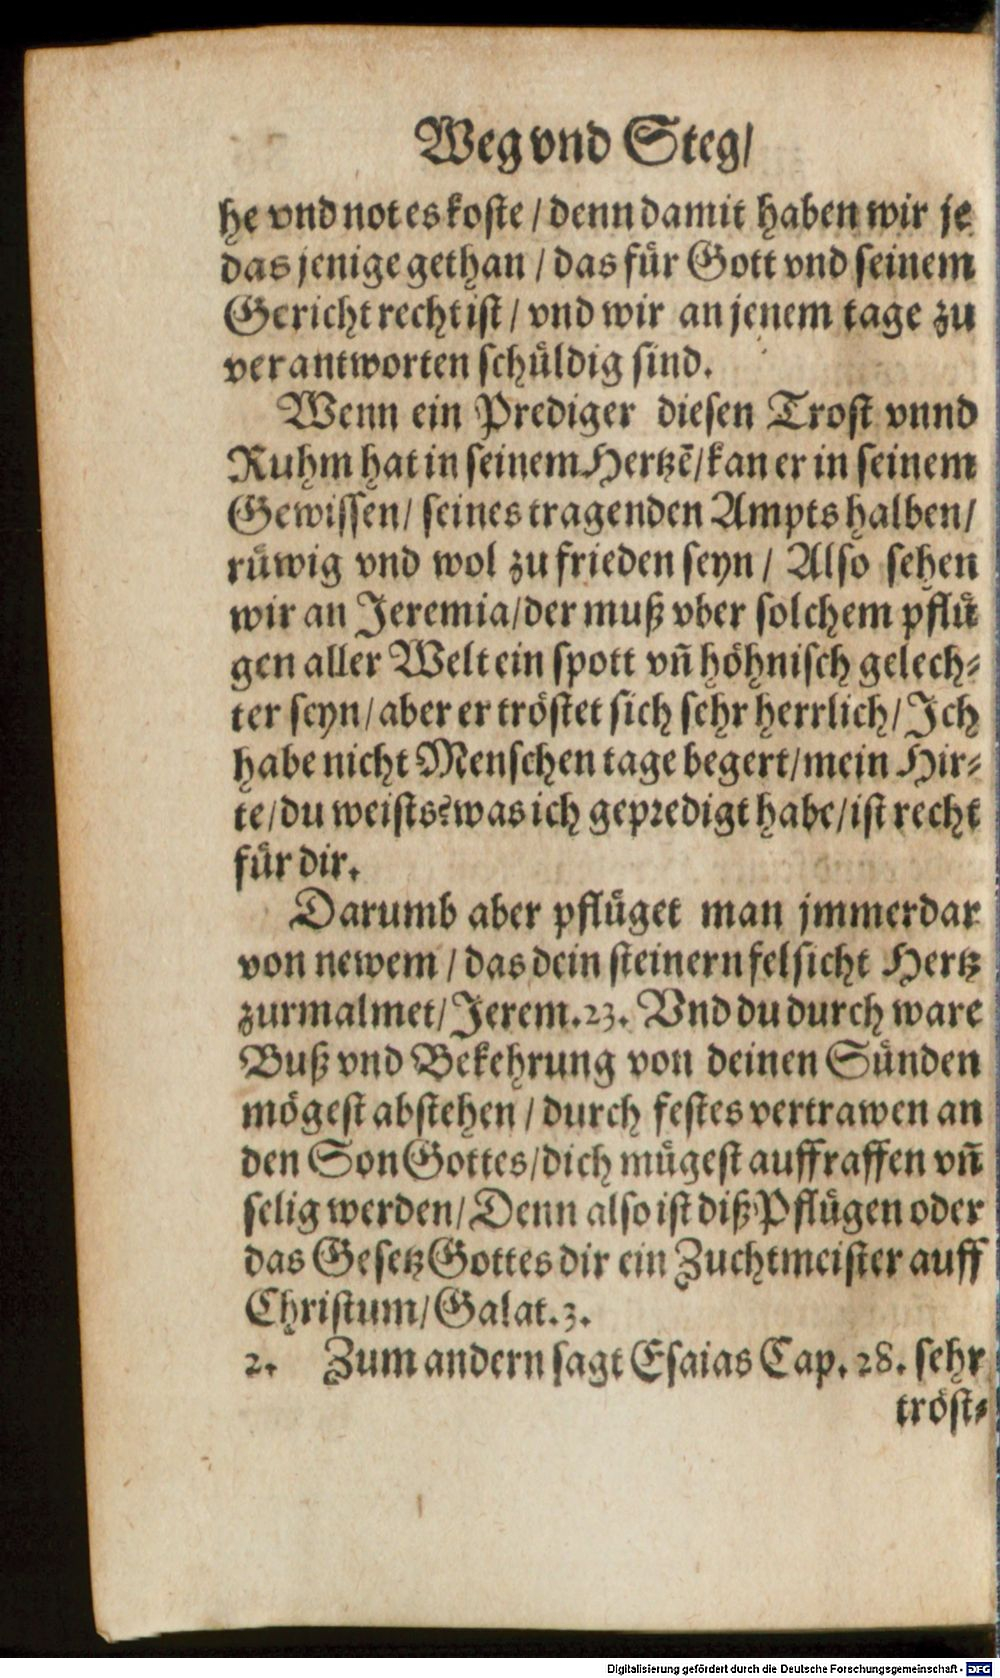 Weg vnd Steg/
he vnd not es koste / denn damit haben wir je
das jenige gethan / das für Gott vnd seinem
Gericht recht ist / vnd wir an jenem tage zu
verantworten schüldig sind.
Wenn ein Prediger diesen Trost vnnd
Ruhm hat in seinem Hertzē/kan er in seinem
Gewissen/ seines tragenden Ampts halben/
rüwig vnd wol zu frieden seyn / Also sehen
wir an Jeremia/der muß vber solchem pflü
gen aller Welt ein spott vñ höhnisch gelech-
ter seyn/aber er tröstet sich sehr herrlich/Ich
habe nicht Menschen tage begert/mein Hir-
te/du weists? was ich gepredigt habe/ist recht
für dir.
Darumb aber pflüget man jmmerdar
von newem / das dein steinern felsicht Hertz
zurmalmet/Jerem.23. Vnd du durch ware
Buß vnd Bekehrung von deinen Sünden
mögest abstehen / durch festes vertrawen an
den Son Gottes/dich mügest auffraffen vñ
selig werden/Denn also ist diß Pflügen oder
das Gesetz Gottes dir ein Zuchtmeister auff
Christum/Galat.3.
2. Zum andern sagt Esaias Cap. 28. sehr
tröst-
Digitalisierung gefördert durch die Deutsche Forschungsgemeinschaft - DFG